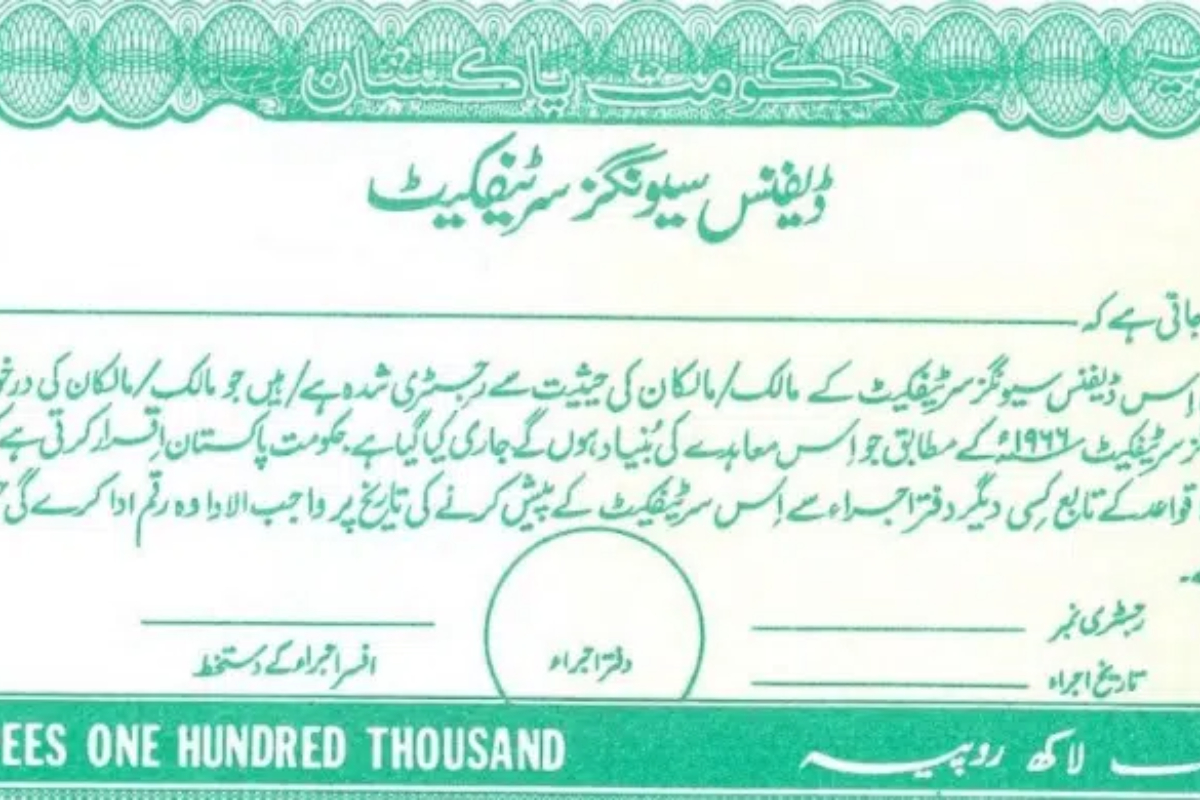 حکومت پاکستان
ڈیفنس سیونگز سرٹیفکیٹ
جاتی ہے کہ
اِس ڈیفنس سیونگز سرٹیفکیٹ کے مالک/مالکان کی حیثیت سے رجسٹری شدہ ہے/ہیں جو مالک/مالکان کی
سرٹیفکیٹ ۱۹۶۶ء کے مطابق جو اِس معاہدے کی بُنیاد ہوں گے جاری کیا گیا ہے حکومت پاکستان اِقرار کرتی ہے
قواعد کے تابع کِسی دیگر دفتر اجراء سے اِس سرٹیفکیٹ کے پیش کرنے کی تاریخ پر واجب الادا وہ رقم ادا کرے گی
رجسٹری نمبر
تاریخ اجراء
دفتر اجراء
افسر اجراء کے دستخط
EES ONE HUNDRED THOUSAND
لاکھ روپیہ